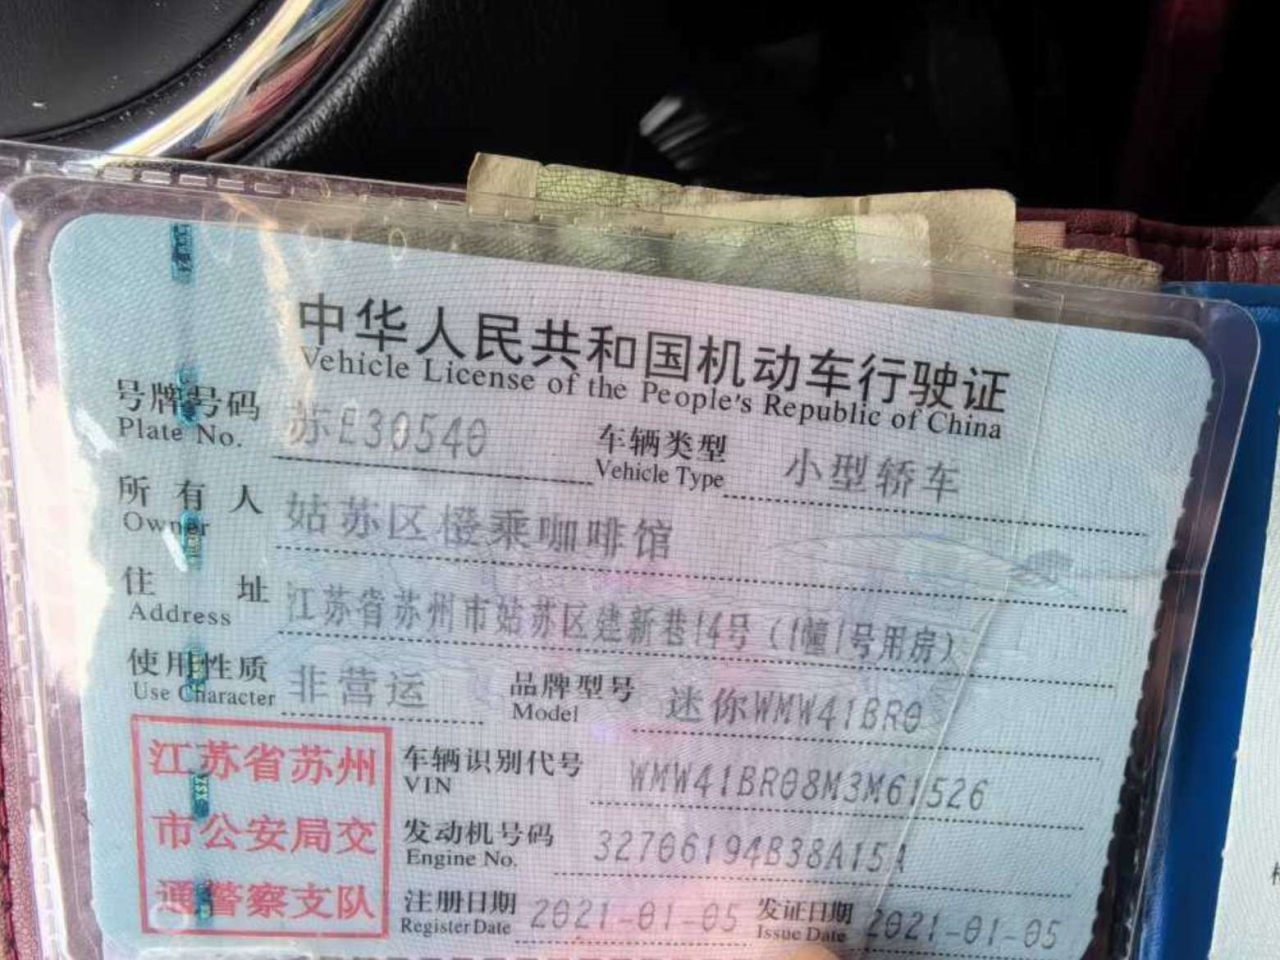 中华人民共和国机动车行驶证
Vehicle License of the People's Republic of China
号牌号码 苏E30540 车辆类型 小型轿车
Plate No. Vehicle Type
所有人 姑苏区橙乘咖啡馆
Owner
住址 江苏省苏州市姑苏区建新巷14号（1幢1号用房）
Address
使用性质 非营运 品牌型号 迷你WMW41BR0
Use Character Model
江苏省苏州
市公安局交
通警察支队
车辆识别代号 WMW41BR08M3M61526
VIN
发动机号码 32706194B38A15A
Engine No.
注册日期 2021-01-05 发证日期 2021-01-05
Register Date Issue Date